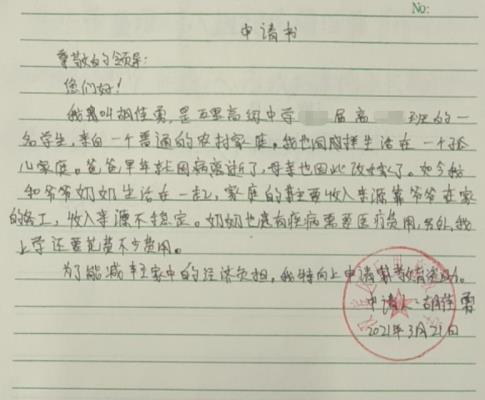 No:
申请书
尊敬的领导:
您们好!
我叫胡佳勇,是五里高级中学 届高 班的一
名学生,来自一个普通的农村家庭。我也同样生活在一个孤
儿家庭。爸爸早年就因病离逝了,母亲也因此改嫁了。如今我
和爷爷奶奶生活在一起,家庭的主要收入来源靠爷爷在家
的务工,收入来源不稳定。奶奶也患有疾病需要医疗费用,另外,我
上学还要花费不少费用。
为了能减轻家中的经济负担,我特向上申请 教育资助。
申请人:胡佳勇
2021年3月21日